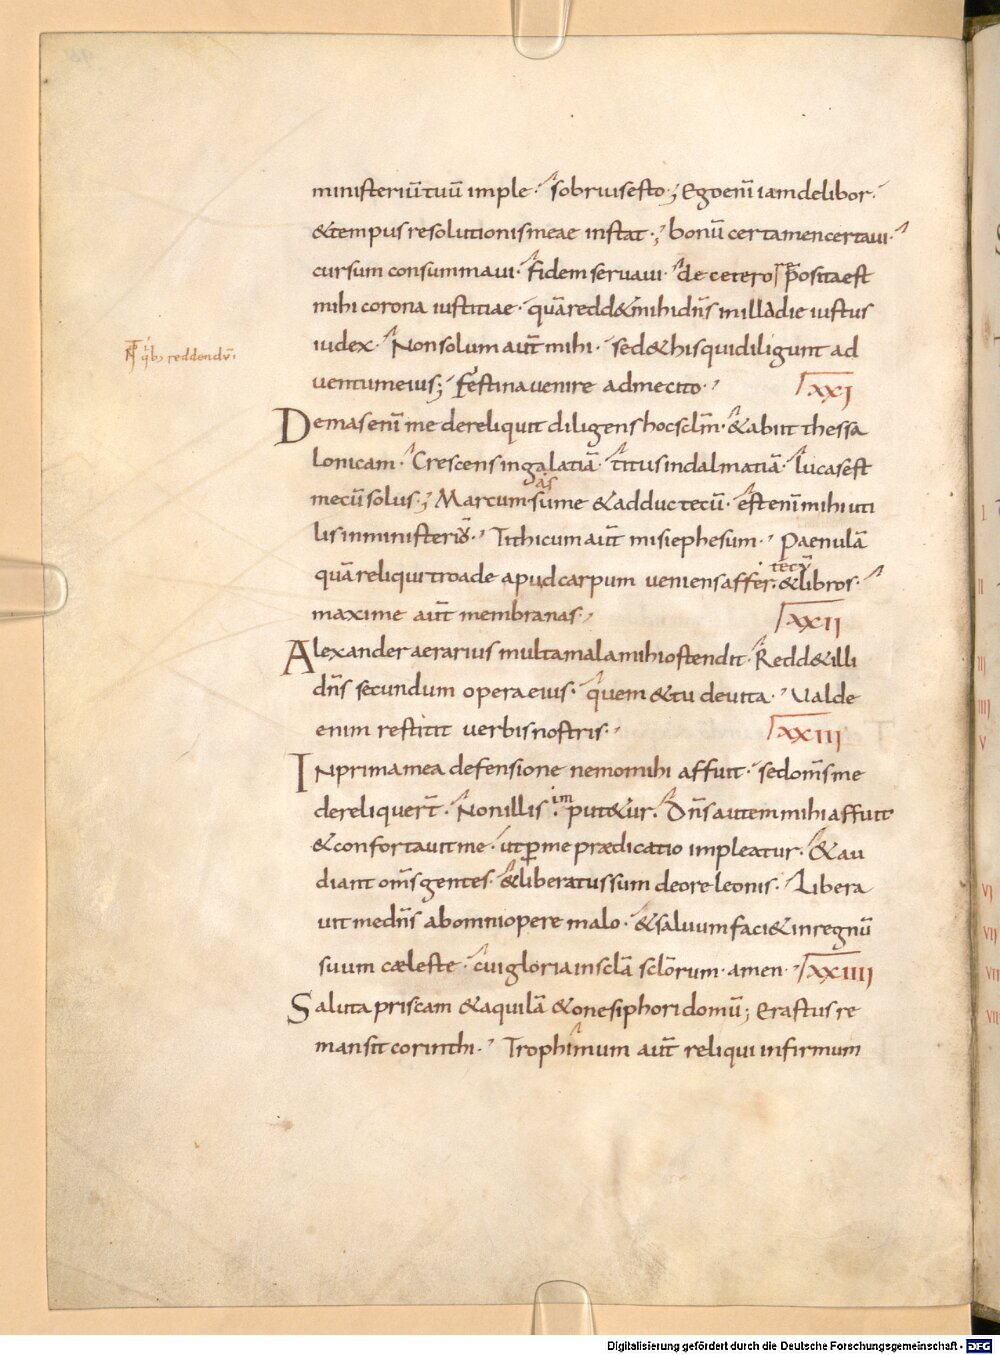 ministeriū tuū imple · sobrius esto ; Ego enī iam delibor ·
& tempus resolutionis meae instat ; bonū certamen certaui ·
cursum consummaui · fidem seruaui · de cetero p̄posita est
mihi corona iustitiae · quā redd& mihi dn̄s in illa die iustus
iudex · Non solum aut̄ mihi · sed & his qui diligunt ad
uentum eius ; festina uenire ad me cito ·
XXI
Demas enī me dereliquit diligens hoc sclm̄ · & abiit thessa
lonicam · Crescens in galatiā · titus in dalmatiā · lucas est
mecū solus ; Marcum adsume & adduc tecū · est enī mihi uti
lis in ministeriū · Tithicum aut̄ misi ephesum · Paenulā
quā reliqui troade apud carpum ueniens affer tecū · & libros ·
maxime aut̄ membranas ·
XXII
Alexander aerarius multa mala mihi ostendit · Redd& illi
dn̄s secundum opera eius · quem & tu deuita · Ualde
enim restitit uerbis nostris ·
XXIII
In prima mea defensione nemo mihi affuit · sed om̄s me
dereliquer̄t · Non illis imput&ur · Dn̄s autem mihi affuit
& confortauit me · ut p̱ me prædicatio impleatur · & au
diant om̄s gentes · & liberatus sum de ore leonis · Libera
uit me dn̄s ab omni opere malo · & saluum faci& in regnū
suum cæleste · cui gloria in scl̄a scl̄orum · amen ·
XXIIII
Saluta priscam & aquilā & onesiphori domū ; Erastus re
mansit corinthi · Trophimum aut̄ reliqui infirmum
q̇b; reddendū
I
II
III
IIII
V
VI
VII
Digitalisierung gefördert durch die Deutsche Forschungsgemeinschaft - DFG